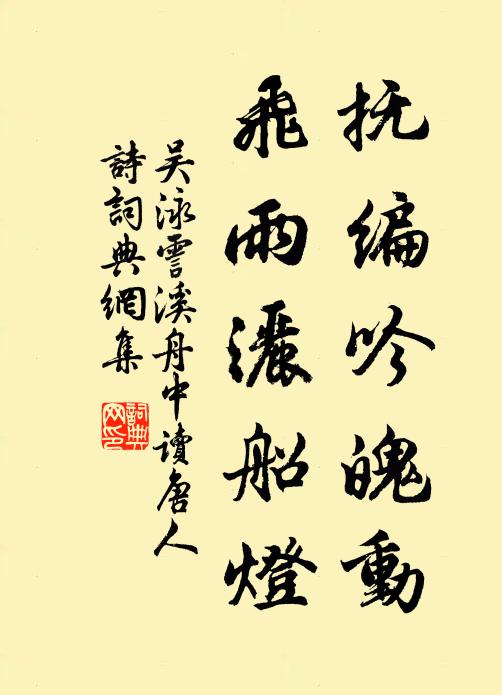 抚编吟魄動
飛雨灑船燈
吴泳雲溪舟中讀唐人
詩詞典網集
詞典网印